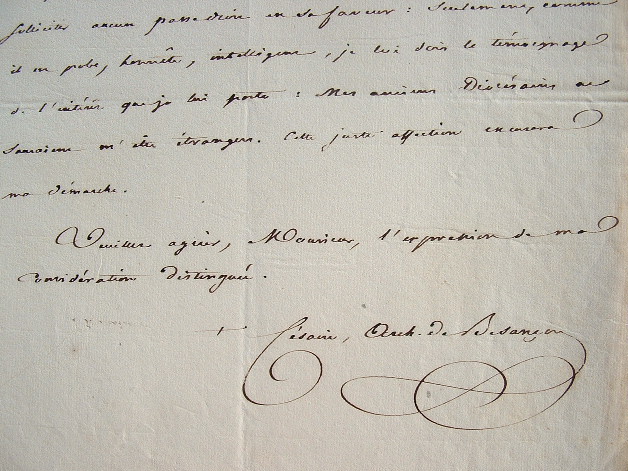 solliciter aucun passe droit en sa faveur : Seulement, comme
il est probe, honnête, intelligent, je lui dois le témoignage
de l'intérêt que je lui porte : Mes anciens Diocésains ne
sauraient m'être étrangers. Cette juste affection excusera
ma démarche.
Veuillez agréer, Monsieur, l'expression de ma
considération distinguée.
+ Césaire, Arch. de Besançon